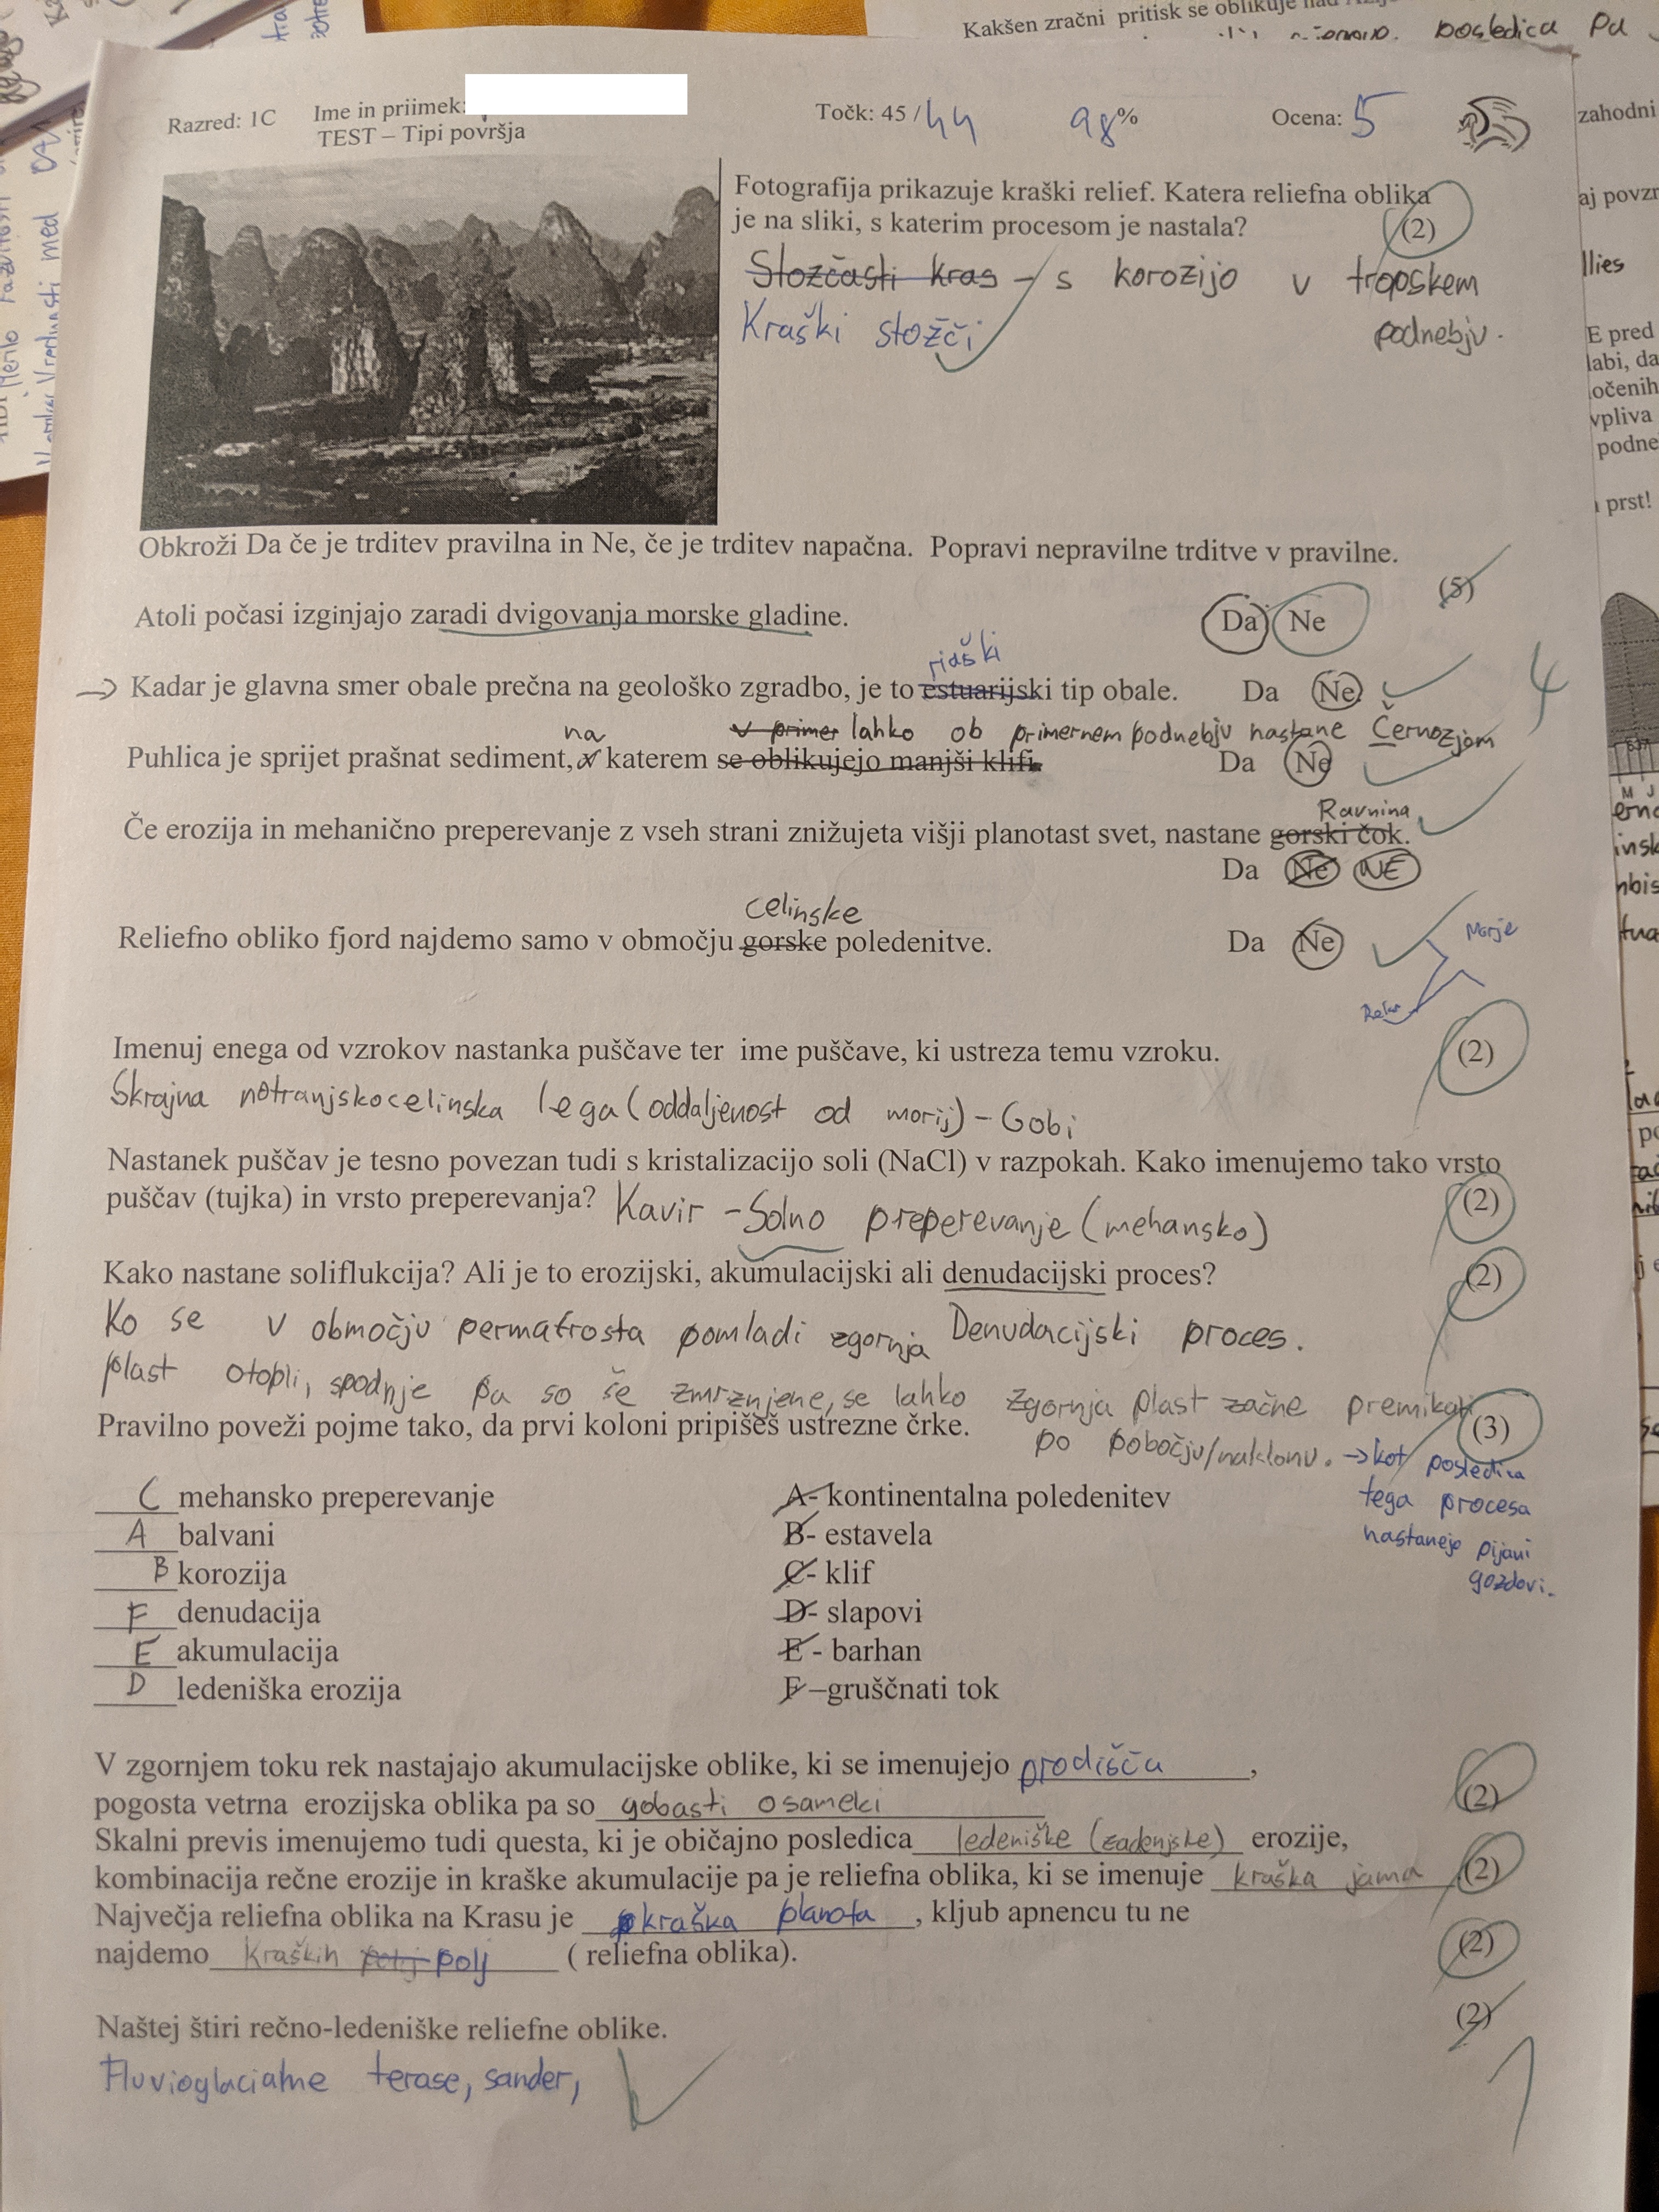 Kakšen zračni pritisk se oblikuje nad
posledica pa
Razred: 1C Ime in priimek:
TEST – Tipi površja
Točk: 45 / 44 98 % Ocena: 5
zahodni
Fotografija prikazuje kraški relief. Katera reliefna oblika
je na sliki, s katerim procesom je nastala? (2)
Stožčasti kras - s korozijo v tropskem
podnebju.
Kraški stožči
aj povzr
llies
E pred
labi, da
očenih
vpliva
podne
prst!
Obkroži Da če je trditev pravilna in Ne, če je trditev napačna. Popravi nepravilne trditve v pravilne.
(5)
Atoli počasi izginjajo zaradi dvigovanja morske gladine. Da Ne
riaški
→ Kadar je glavna smer obale prečna na geološko zgradbo, je to estuarijski tip obale. Da Ne
4
na v primer lahko ob primernem podnebju nastane Černozjom
Puhlica je sprijet prašnat sediment, v katerem se oblikujejo manjši klifi. Da Ne
Ravnina
Če erozija in mehanično preperevanje z vseh strani znižujeta višji planotast svet, nastane gorski čok.
Da Ne NE
celinske
Reliefno obliko fjord najdemo samo v območju gorske poledenitve. Da Ne
Morje
Reka
Imenuj enega od vzrokov nastanka puščave ter ime puščave, ki ustreza temu vzroku. (2)
Skrajna notranjskocelinska lega (oddaljenost od morij) - Gobi
Nastanek puščav je tesno povezan tudi s kristalizacijo soli (NaCl) v razpokah. Kako imenujemo tako vrsto
puščav (tujka) in vrsto preperevanja? Kavir - Solno preperevanje (mehansko) (2)
Kako nastane soliflukcija? Ali je to erozijski, akumulacijski ali denudacijski proces? (2)
Ko se v območju permafrosta pomladi zgornja Denudacijski proces.
plast otopli, spodnje pa so še zmrznjene, se lahko zgornja plast začne premikati
po pobočju/naklonu. → kot posledica
tega procesa
nastanejo pijani
gozdovi.
Pravilno poveži pojme tako, da prvi koloni pripišeš ustrezne črke. (3)
C mehansko preperevanje A- kontinentalna poledenitev
A balvani B- estavela
B korozija C- klif
F denudacija D- slapovi
E akumulacija E - barhan
D ledeniška erozija F –gruščnati tok
V zgornjem toku rek nastajajo akumulacijske oblike, ki se imenujejo prodišča,
pogosta vetrna erozijska oblika pa so gobasti osamelci (2)
Skalni previs imenujemo tudi questa, ki je običajno posledica ledeniške (zadenjske) erozije,
kombinacija rečne erozije in kraške akumulacije pa je reliefna oblika, ki se imenuje kraška jama (2)
Največja reliefna oblika na Krasu je kraška planota, kljub apnencu tu ne
najdemo kraških polj polj ( reliefna oblika). (2)
Naštej štiri rečno-ledeniške reliefne oblike. (2)
Fluvioglacialne terase, sander,
1